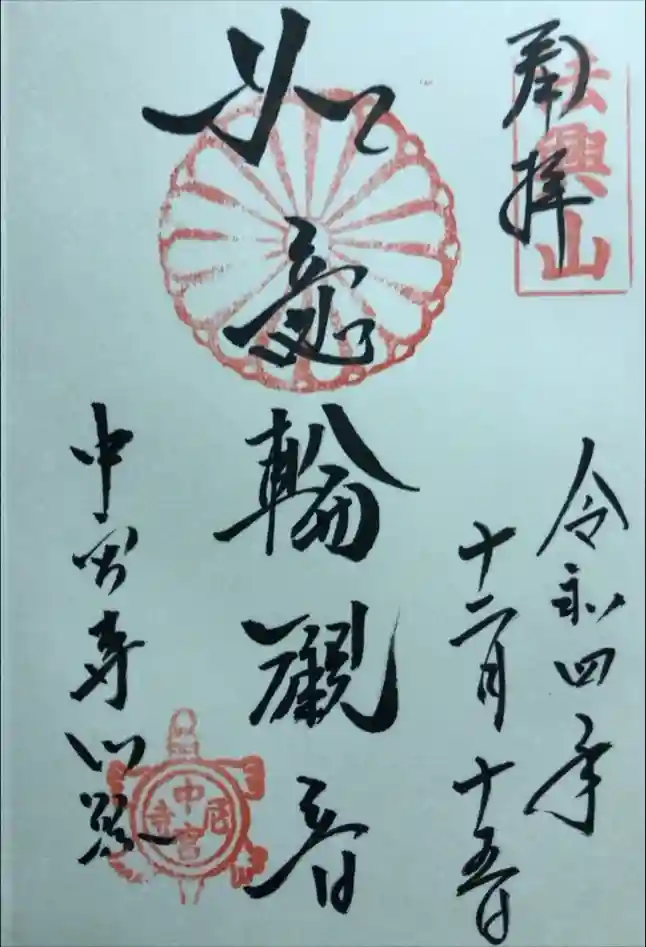 奉拝
法興山
令和四年
十二月十五日
如意輪觀音
中宮寺門跡
中宮尼寺